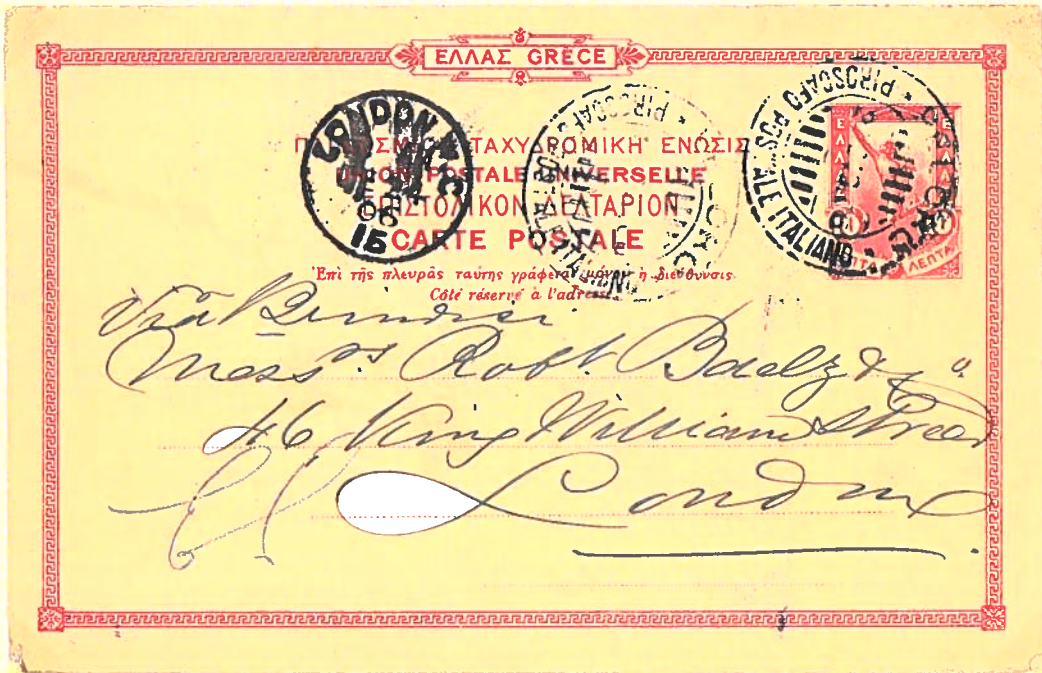 ΕΛΛΑΣ GRÈCE
ΤΑΧΥΔΡΟΜΙΚΗ ΕΝΩΣΙΣ
UNION POSTALE UNIVERSELLE
ΕΠΙΣΤΟΛΙΚΟΝ ΔΕΛΤΑΡΙΟΝ
CARTE POSTALE
Ἐπὶ τῆς πλευρᾶς ταύτης γράφεται μόνον ἡ διεύθυνσις.
Côté réservé à l'adresse
LONDON
06
15
PIROSCAFO POSTALE ITALIANO
PIROSCAFO POSTALE ITALIANO
ΛΕΠΤΑ
Via Brindisi
Mess.rs Robt. Baelz & Co
46 King William Street
London